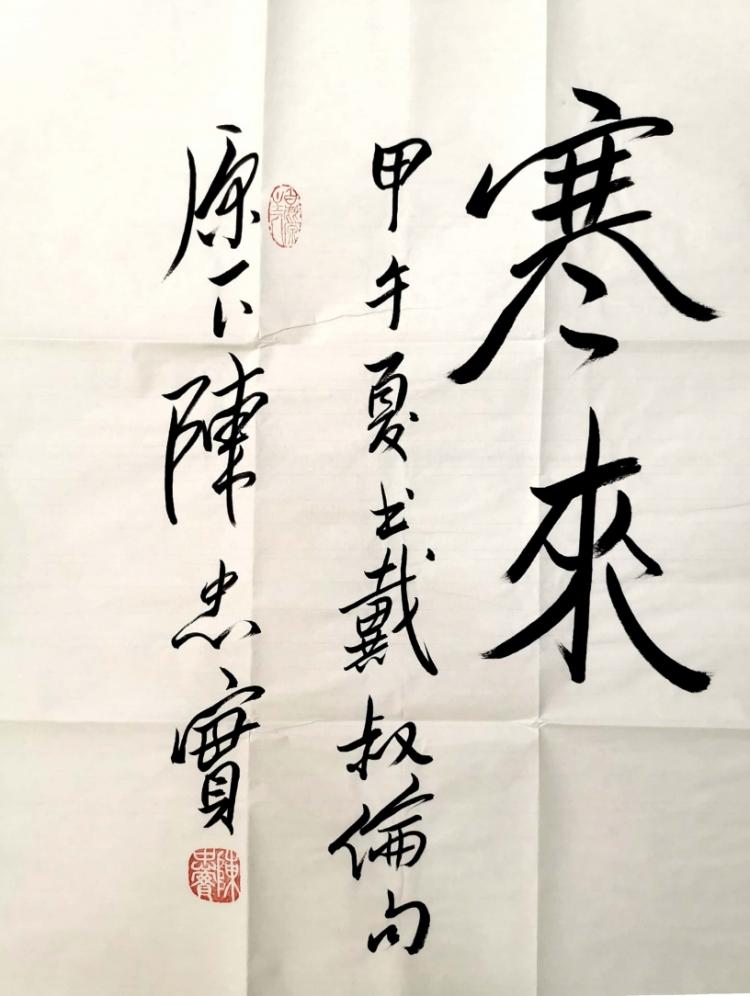 寒來
甲午夏书戴叔倫句
原下陳忠實
陳忠實